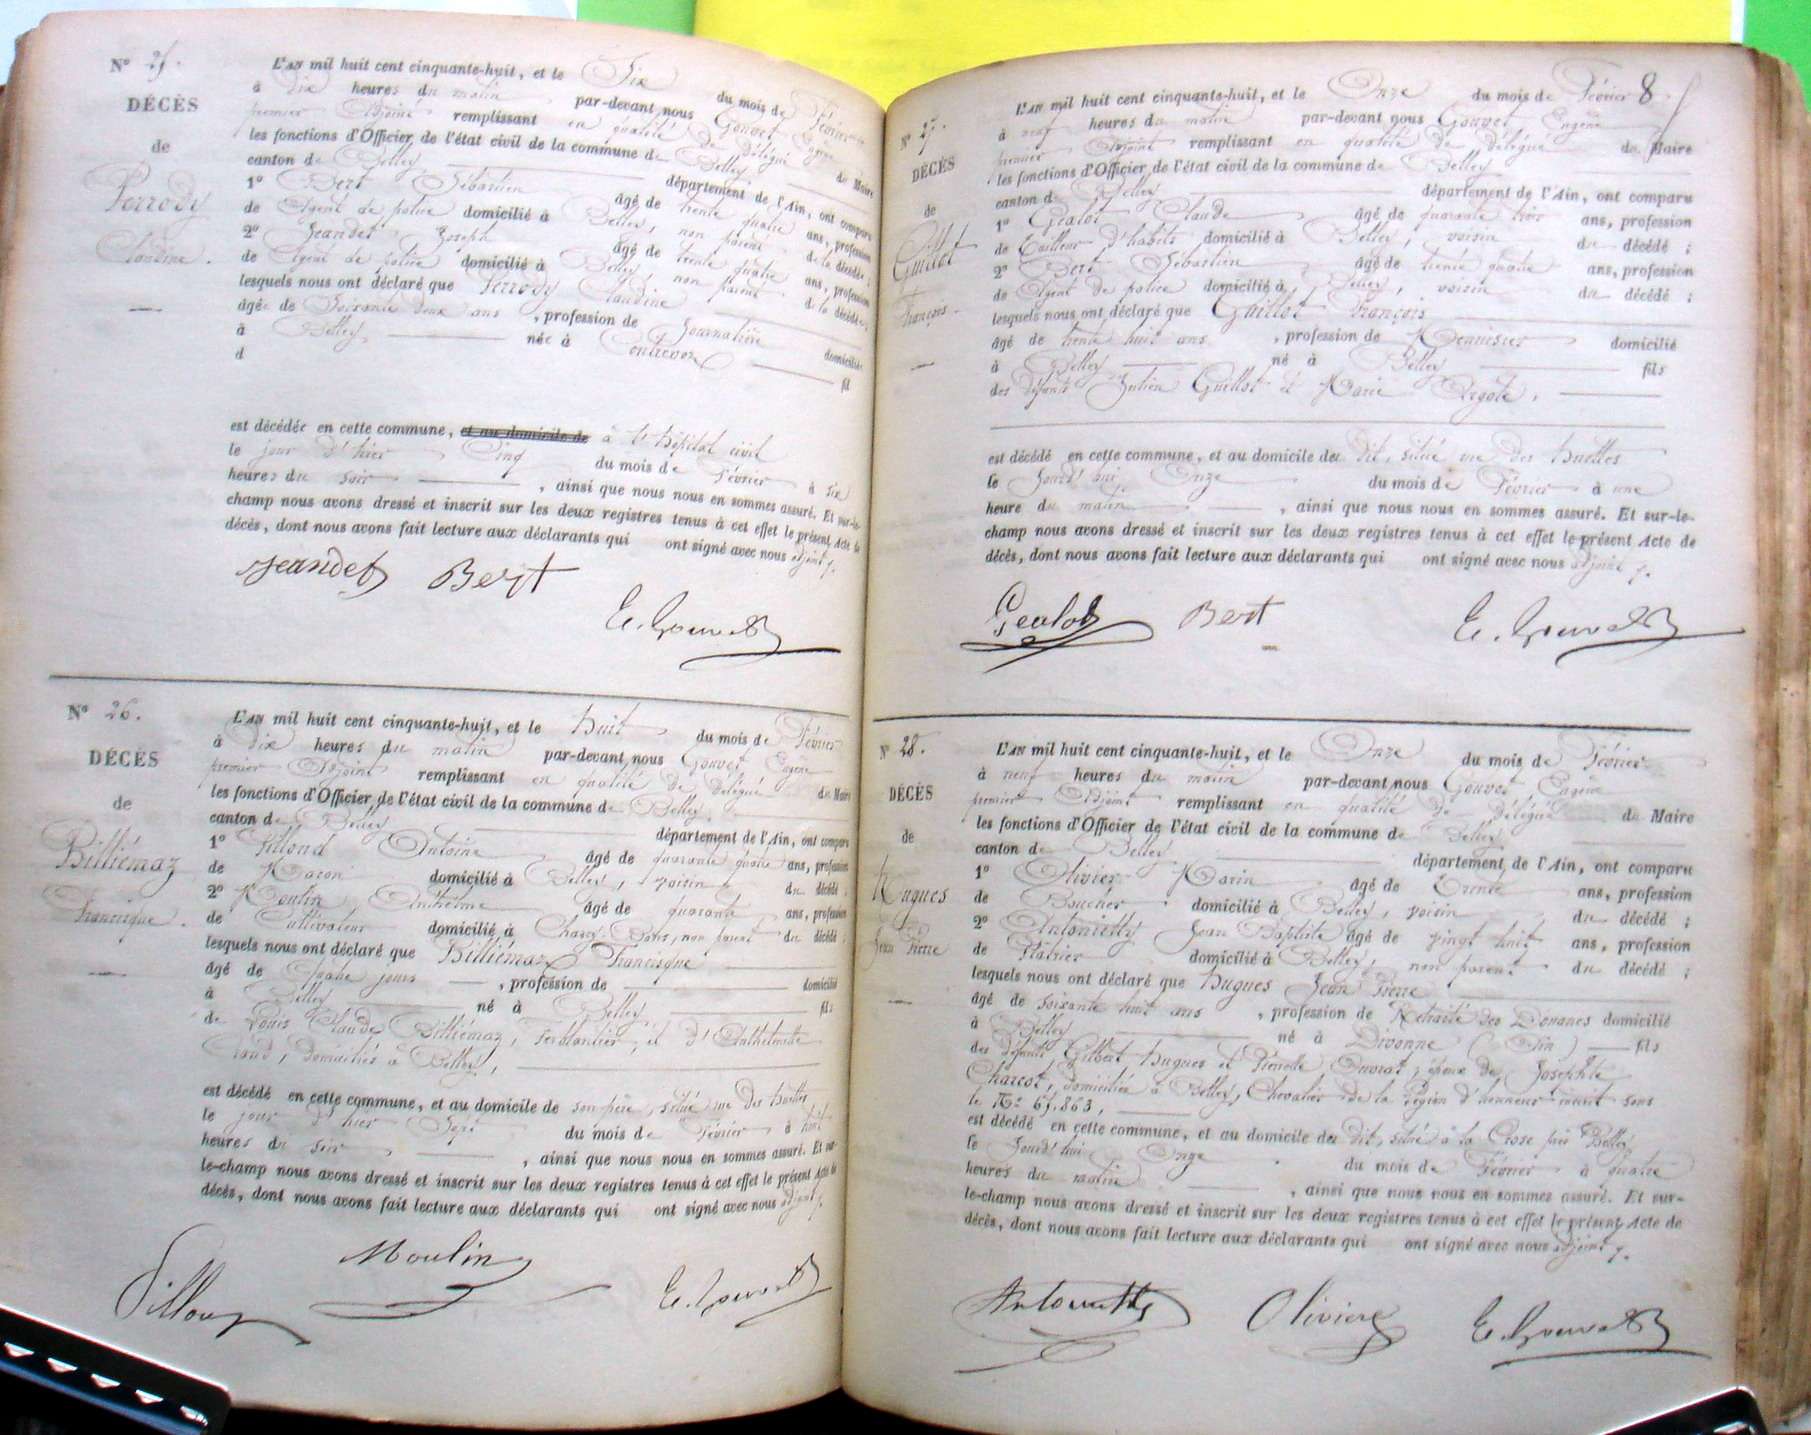 N° 25.
DÉCÈS
de
Perrody
Claudine.
L'AN mil huit cent cinquante-huit, et le Six du mois de Février
à dix heures du matin par-devant nous Gouvet Eugène
premier Adjoint remplissant en qualité de Délégué du Maire
les fonctions d'Officier de l'état civil de la commune de Belley
canton de Belley département de l'Ain, ont comparu
1° Bert Sébastien âgé de trente quatre ans, profession
de Agent de police domicilié à Belley, non parent de la décédée;
2° Jeandet Joseph âgé de trente quatre ans, profession
de Agent de police domicilié à Belley, non parent de la décédée;
lesquels nous ont déclaré que Perrody Claudine
âgée de Soixante deux ans, profession de Journalière domiciliée
à Belley, née à Contrevoz fil
d
est décédée en cette commune, et au domicile de à l'hôpital civil
le jour d'hier Cinq du mois de Février à six
heures du soir, ainsi que nous nous en sommes assuré. Et sur-le-
champ nous avons dressé et inscrit sur les deux registres tenus à cet effet le présent Acte de
décès, dont nous avons fait lecture aux déclarants qui ont signé avec nous adjoint
Jeandet Bert
E. Gouvet
N° 26.
DÉCÈS
de
Billiémaz
Francisque.
L'AN mil huit cent cinquante-huit, et le huit du mois de Février
à Dix heures du matin par-devant nous Gouvet Eugène
premier Adjoint remplissant en qualité de Délégué du Maire
les fonctions d'Officier de l'état civil de la commune de Belley
canton de Belley département de l'Ain, ont comparu
1° Antoine âgé de quarante quatre ans, profession
de Maçon domicilié à Belley, voisin du décédé;
2° Moulin Anthelme âgé de quarante ans, profession
de Cultivateur domicilié à non parent du décédé;
lesquels nous ont déclaré que Billiémaz Francisque
âgé de quatre jours, profession de domicilié
à Belley né à Belley fils
de Louis Claude Billiémaz, ferblantier, et d'Anthelmette
domiciliés à Belley,
est décédé en cette commune, et au domicile de son père, situé rue des huelles
le jour d'hier Sept du mois de Février à huit
heures du soir, ainsi que nous nous en sommes assuré. Et sur-
le-champ nous avons dressé et inscrit sur les deux registres tenus à cet effet le présent Acte de
décès, dont nous avons fait lecture aux déclarants qui ont signé avec nous adjoint
Moulin
E. Gouvet
8
N° 27.
DÉCÈS
de
Guillot
François.
L'AN mil huit cent cinquante-huit, et le Onze du mois de Février
à neuf heures du matin par-devant nous Gouvet Eugène
premier Adjoint remplissant en qualité de délégué du Maire
les fonctions d'Officier de l'état civil de la commune de Belley
canton de Belley département de l'Ain, ont comparu
1° Gealot Claude âgé de quarante trois ans, profession
de Tailleur d'habits domicilié à Belley, voisin du décédé;
2° Bert Sébastien âgé de trente quatre ans, profession
de Agent de police domicilié à Belley, voisin du décédé;
lesquels nous ont déclaré que Guillot François
âgé de trente huit ans, profession de Menuisier domicilié
à Belley né à Belley fils
des défunts Julien Guillot et Marie
est décédé en cette commune, et au domicile du dit, situé rue des huelles
le Jourd'hui Onze du mois de Février à une
heure du matin, ainsi que nous nous en sommes assuré. Et sur-le-
champ nous avons dressé et inscrit sur les deux registres tenus à cet effet le présent Acte de
décès, dont nous avons fait lecture aux déclarants qui ont signé avec nous adjoint
Gealot Bert E. Gouvet
N° 28.
DÉCÈS
de
Hugues
Jean Pierre
L'AN mil huit cent cinquante-huit, et le Onze du mois de Février
à neuf heures du matin par-devant nous Gouvet, Eugène
premier Adjoint remplissant en qualité de délégué du Maire
les fonctions d'Officier de l'état civil de la commune de Belley
canton de Belley département de l'Ain, ont comparu
1° Olivier Marin âgé de Trente ans, profession
de Boucher domicilié à Belley, voisin du décédé;
2° Jean Baptiste âgé de vingt huit ans, profession
de Plâtrier domicilié à Belley, non parent du décédé;
lesquels nous ont déclaré que Hugues Jean Pierre
âgé de soixante huit ans, profession de Retraité des Douanes domicilié
à Belley né à Divonne (Ain) fils
des défunts Gilbert Hugues et Pernette époux de Josephte
Charcot, domiciliée à Belley, Chevalier de la Légion d'honneur inscrit sous
le N° 65,863,
est décédé en cette commune, et au domicile du dit, situé à la
le Jourd'hui Onze du mois de Février à quatre
heures du matin, ainsi que nous nous en sommes assuré. Et sur-
le-champ nous avons dressé et inscrit sur les deux registres tenus à cet effet le présent Acte de
décès, dont nous avons fait lecture aux déclarants qui ont signé avec nous adjoint
Olivier E. Gouvet